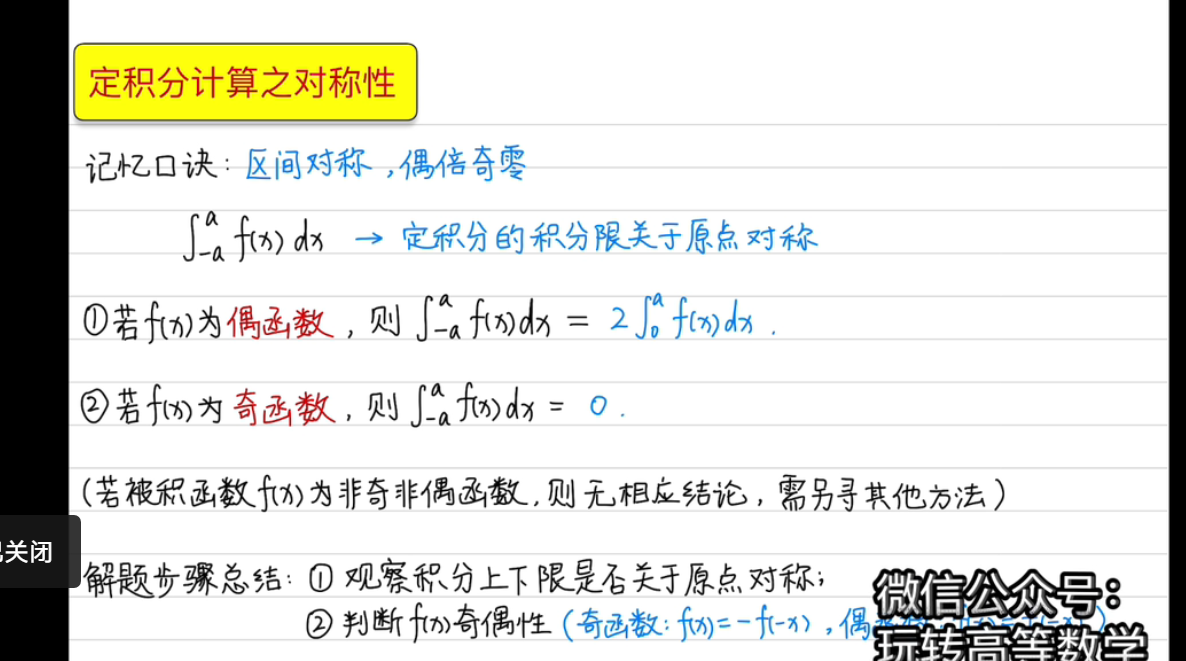 定积分计算之对称性
记忆口诀：区间对称，偶倍奇零
∫_{-a}^{a} f(x) dx → 定积分的积分限关于原点对称
①若f(x)为偶函数，则 ∫_{-a}^{a} f(x)dx = 2∫_{0}^{a} f(x)dx .
②若f(x)为奇函数，则 ∫_{-a}^{a} f(x)dx = 0 .
(若被积函数f(x)为非奇非偶函数，则无相应结论，需另寻其他方法)
关闭
解题步骤总结：① 观察积分上下限是否关于原点对称；
② 判断f(x)奇偶性 (奇函数：f(x)=-f(-x)，偶
微信公众号：
玩转高等数学